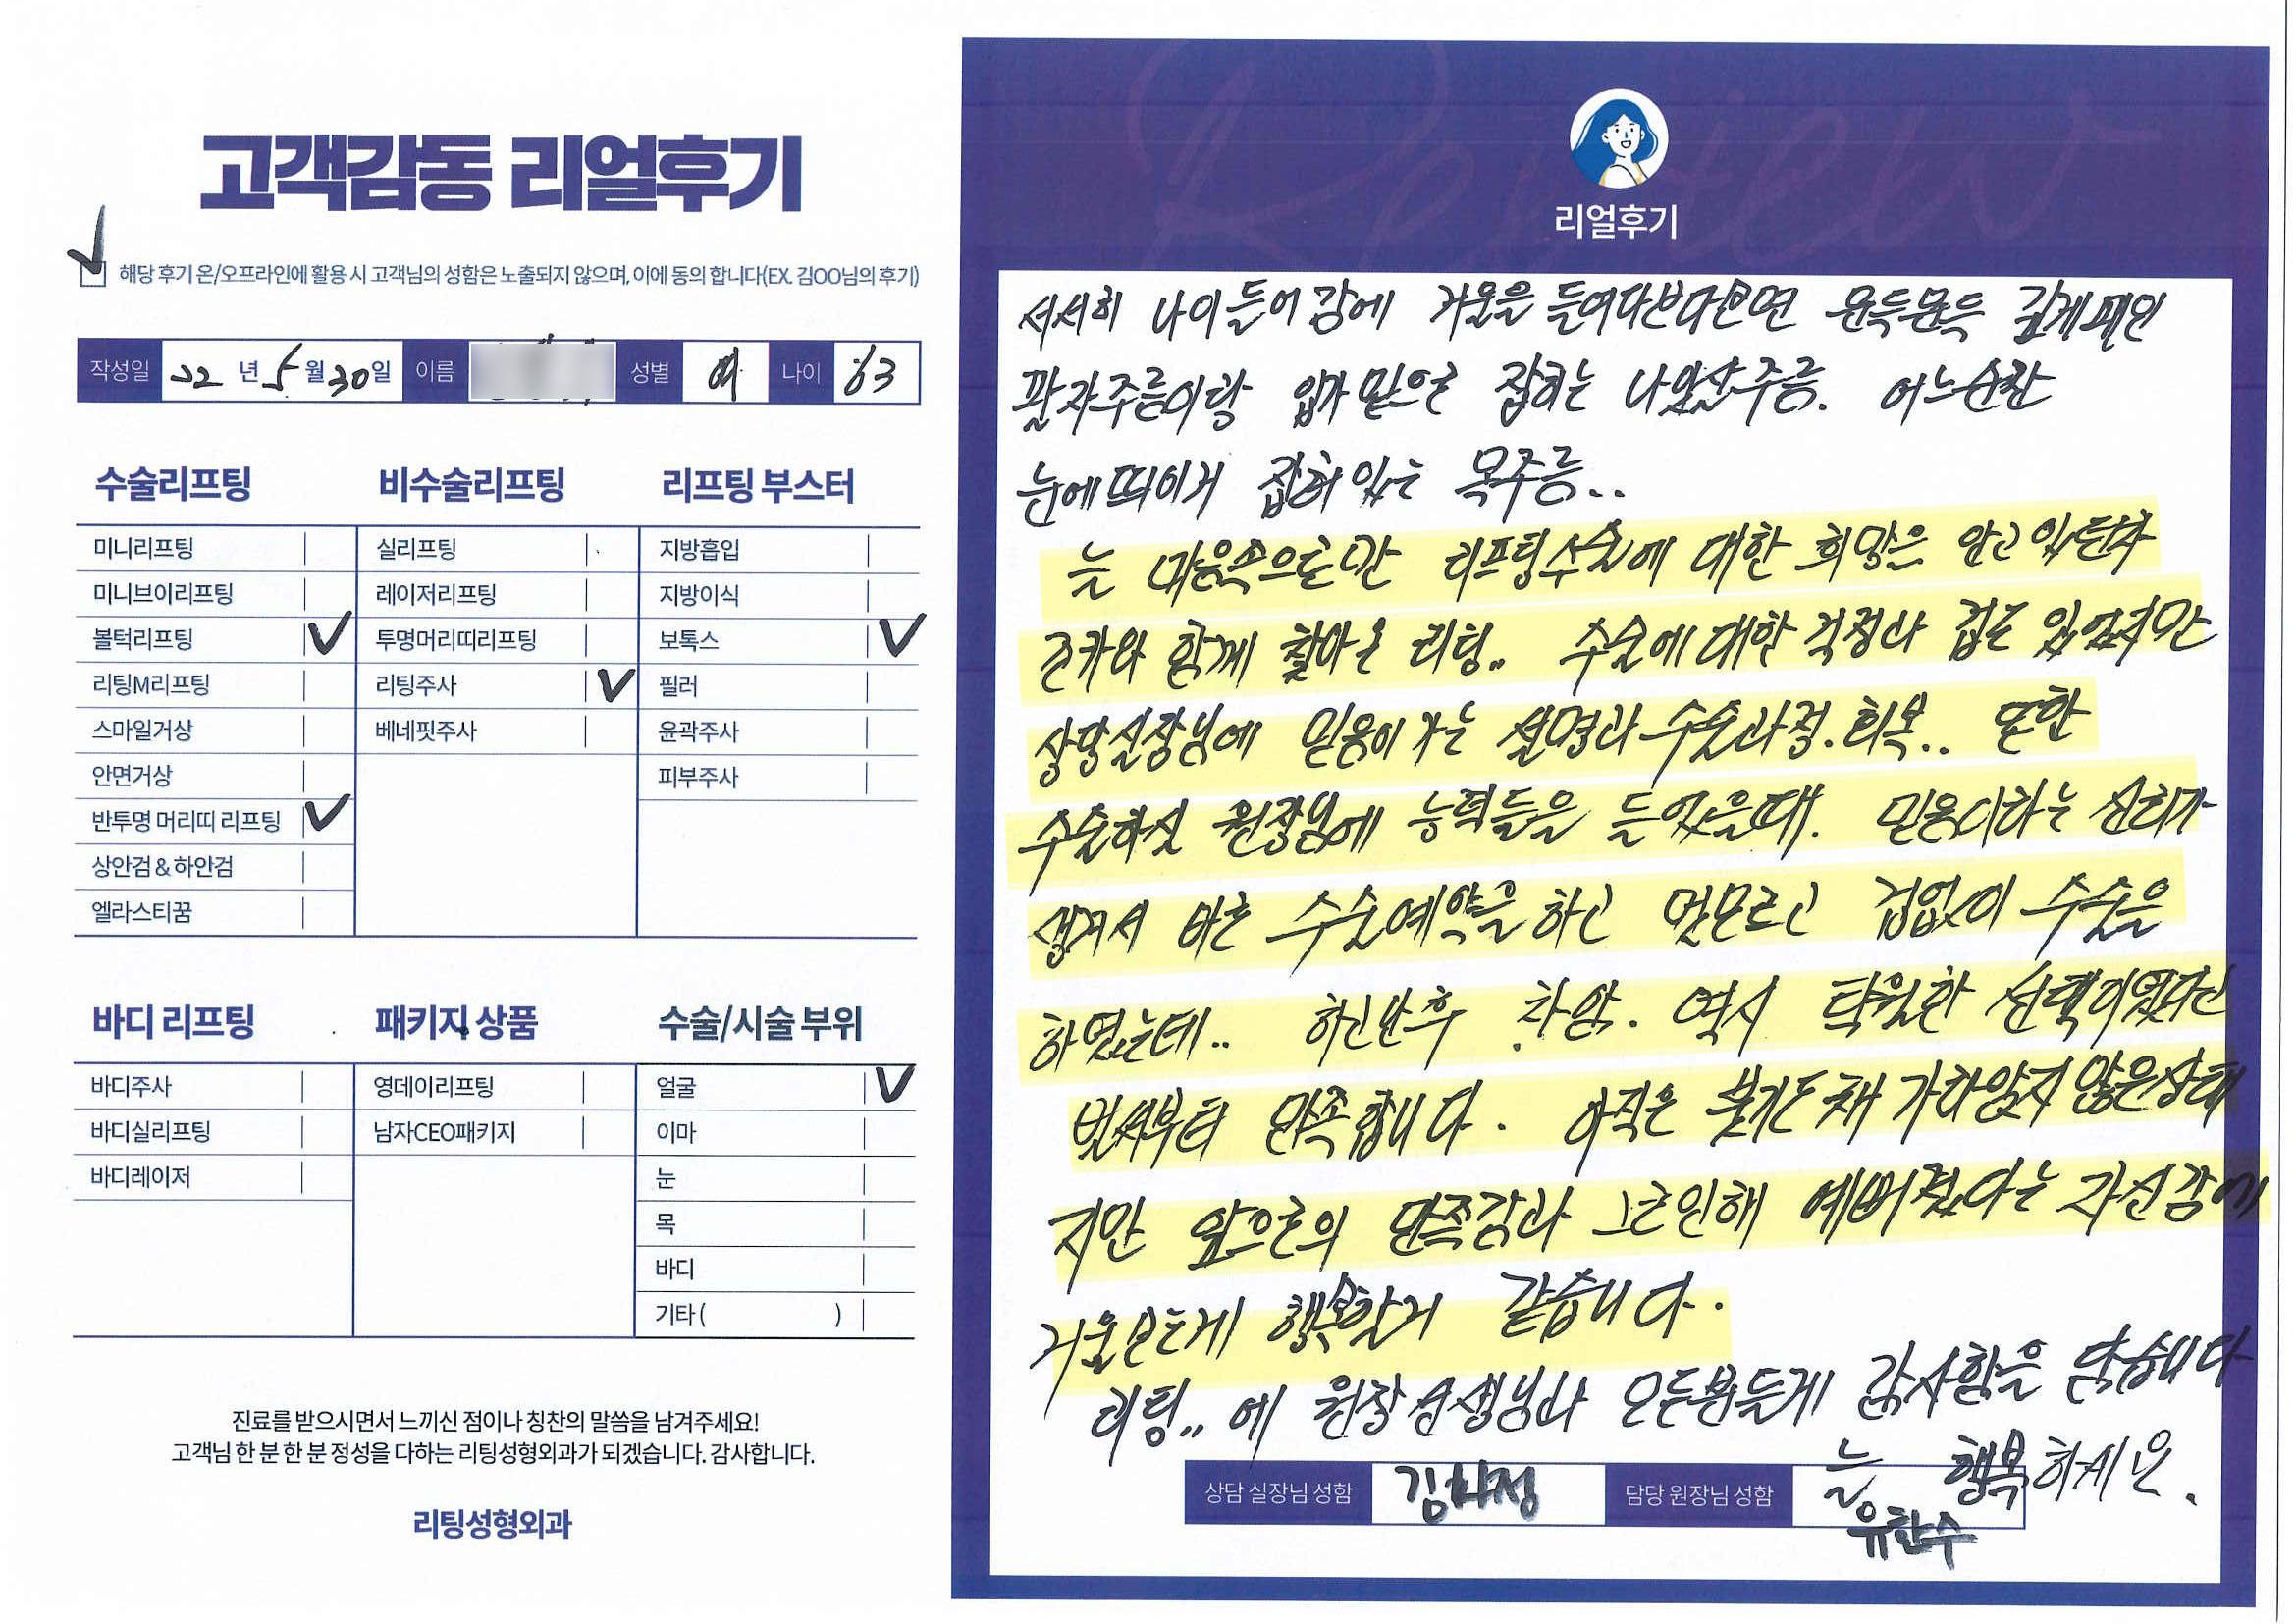 고객감동 리얼후기
해당 후기 온/오프라인에 활용 시 고객님의 성함은 노출되지 않으며, 이에 동의 합니다(EX. 김OO님의 후기)
작성일 22 년 5 월 30 일 이름 성별 여 나이 63
수술리프팅 비수술리프팅 리프팅 부스터
미니리프팅 실리프팅 지방흡입
미니브이리프팅 레이저리프팅 지방이식
볼턱리프팅 투명머리띠리프팅 보톡스
리팅M리프팅 리팅주사 필러
스마일거상 베네핏주사 윤곽주사
안면거상 피부주사
반투명 머리띠 리프팅
상안검 & 하안검
엘라스티꿈
바디 리프팅 패키지 상품 수술/시술 부위
바디주사 영데이리프팅 얼굴
바디실리프팅 남자CEO패키지 이마
바디레이저 눈
목
바디
기타 ( )
진료를 받으시면서 느끼신 점이나 칭찬의 말씀을 남겨주세요!
고객님 한 분 한 분 정성을 다하는 리팅성형외과가 되겠습니다. 감사합니다.
리팅성형외과
Review
리얼후기
서서히 나이들어감에 거울을 들여다보다보면 문득문득 깊게패인
팔자주름이랑 입가 밑으로 잡히는 주름. 어느순간
눈에띄이게 잡혀 있는 목주름..
늘 마음속으로만 리프팅수술에 대한 희망은 안고 있던차
조카와 함께 찾아온 리팅.. 수술에대한 걱정과 겁은 있었지만
상담실장님에 믿음이 가는 설명과 수술과정. 회복.. 또한
수술하실 원장님에 능력들을 들었을때. 믿음이라는 신뢰가
생겨서 바로 수술예약을 하고 멋모르고 겁없이 수술을
하였는데.. 하고난후 차암. 역시 탁월한 선택이였다고
벌써부터 만족합니다. 아직은 붓기도 채 가라앉지 않은상태
지만 앞으로의 만족감과 그로인해 예뻐졌다는 자신감에
거울보는게 행복할거 같습니다.
리팅.. 에 원장선생님과 모든분들게 감사함을 담습니다
늘 행복하세요.
상담 실장님 성함 김희정 담당 원장님 성함 유한수